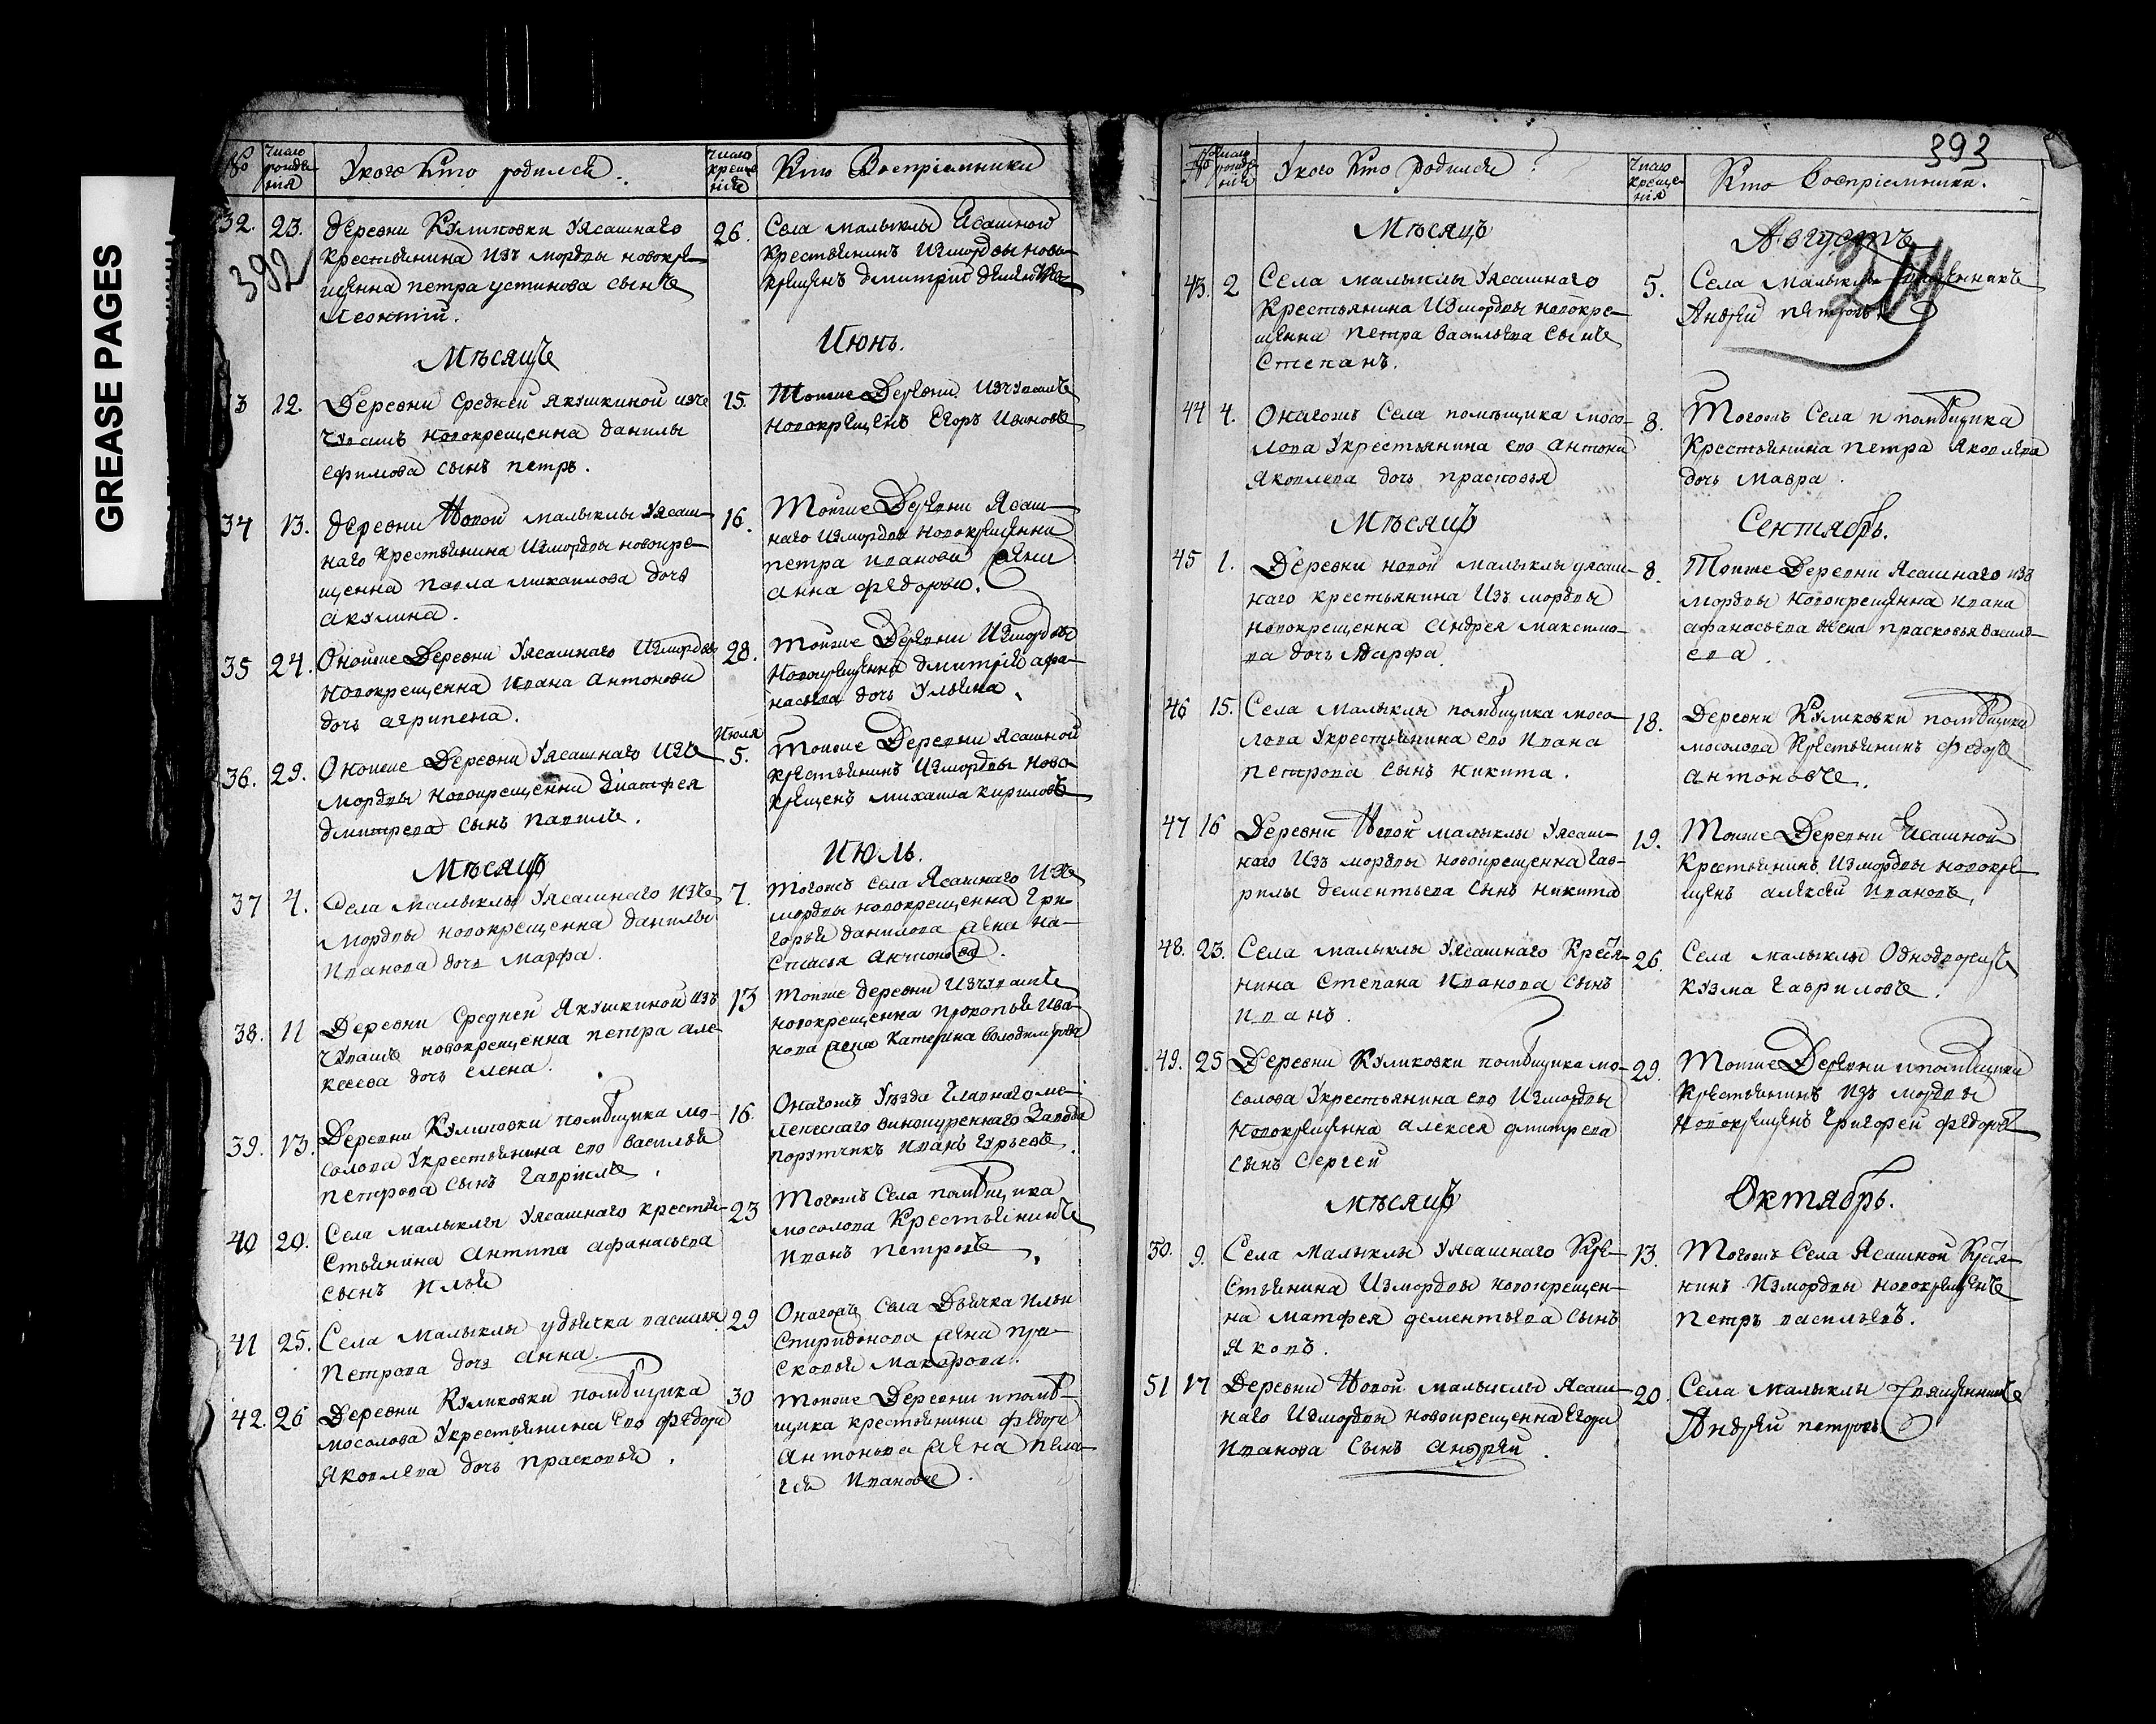 GREASE PAGES
№
Число рожде
ния
У кого кто родился.
Число креще
нія
Кто Воспріемники
32. 23. Деревни Куликовки Уясашнаго
крестьянина Изъ мордвы новокре-
щенна петра устинова сынъ
Леонтій.
392
26. Села малыклы Ясашной
крестьянинъ Измордвы ново-
крещенъ дмитрий
Мѣсяцъ Июнь.
3 12. Деревни Средней якушкиной изъ
чувашъ новокрещенна данилы
ефимова сынъ петръ.
15. Тоиже Деревни Изчувашъ
новокрещенъ Егоръ Ивановъ
34 13. деревни Новой малыклы уясаш-
наго крестьянина Измордвы новокре-
щенна павла михаилова дочь
акулина.
16. Тоиже Деревни Ясаш-
наго измордвы новокрещенна
петра иванова жена
анна федорова.
35 24. Оноиже Деревни Уясашнаго Измордвы
новокрещенна ивана антонова
дочь агрипена.
28. Тоиже Деревни Измордвы
новокрещенна дмитрия афо-
насьева дочь ульяна.
36. 29. Оноиже Деревни Уясашнаго Изъ
мордвы новокрещенна матфея
дмитрева сынъ павилъ.
Июля
5. Тоиже Деревни ясашной
крестьянинъ Измордвы ново-
крещенъ михаила кириловъ
Мѣсяцъ ИЮЛЬ.
37 4. Села малыклы Уясашнаго изъ
мордвы новокрещенна данилы
иванова дочь марфа.
7. Тогожъ села Ясашнаго Изъ
мордвы новокрещенна Гри-
горья данилова жена на-
стасья антонова.
38. 11 Деревни Средней Якушкиной изъ
чувашъ новокрещенна петра але-
ксеева дочь елена.
13 тоиже деревни Изчувашъ
новокрещенна прокопья ива-
нова жена катерина володимерова
39. 13. Деревни Куликовки помѣщика мо-
солова Укрестьянина ево василья
петрова сынъ гаврилъ.
16. Онагожъ Уѣзда главнаго ме-
лекескаго винокуреннаго завода
порутчикъ иванъ гурьевъ.
40 20. Села малыклы Уясашнаго крестья-
стьянина антипа афанасьева
сынъ илья
23 Тогожъ Села помѣщика
мосолова Крестьянинъ
иванъ петровъ.
41 25. Села малыклы удьячка василья
петрова дочь анна.
29 Онагожъ села Дьячка ильи
спиридонова жена пра-
сковья макарова.
42 26 Деревни Куликовки помѣщика
мосолова Укрестьянина Ево федора
яковлева дочь прасковья.
30 Тоиже Деревни ипомѣ-
щика крестьянина федора
антонова жена пела-
гея ивановъ.
393
№
Число рожде
ния
У кого кто родился
Число
креще-
ния
Кто Воспріемники.
Мѣсяцъ Августъ
43. 2 Села малыклы Уясашнаго
Крестьянина Измордвы новокре-
щенна петра васильева сынъ
Степанъ.
5. Села малыклы священникъ
Андрей петровъ
44 4. Онагожъ Села помѣщика мосо-
лова Укрестьянина ево антона
яковлева дочь прасковья
8. Тогожъ Села и помѣщика
Крестьянина петра яковлева
дочь мавра.
Мѣсяцъ Сентябрь.
45 1. Деревни новой малыклы уясаш-
наго крестьянина Изъ мордвы
новокрещенна андрея максимо-
ва дочь Марфа.
8. Тоиже Деревни Ясашнаго изъ
мордвы новокрещенна ивана
афанасьева жена прасковья василь-
ева.
46 15. Села малыклы помѣщика мосо-
лова Укрестьянина ево ивана
петрова сынъ никита.
18. Деревни Куликовки помѣщика
мосолова Крестьянинъ федоръ
антоновъ.
47 16 Деревни Новой малыклы Уясаш-
наго Изъ мордвы новокрещенна гав-
рилы дементьева сынъ никита
19. Тоиже Деревни Ясашной
крестьянинъ Измордвы новокре-
щенъ алексей ивановъ.
48. 23. Села малыклы Уясашнаго Крестья-
нина степана иванова сынъ
иванъ.
26. Села малыклы Однодворецъ
кузма гавриловъ.
49. 25 Деревни Куликовки помѣщика мо-
солова Укрестьянина ево Измордвы
новокрещенна алексея дмитрева
сынъ Сергей
29. Тоиже Деревни ипомѣщика
крестьянинъ Изъ мордвы
новокрещенъ григорей федоровъ
Мѣсяцъ Октябрь.
50. 9. Села малыклы Уясашнаго Кре-
стьянина Измордвы новокрещен-
на матфея дементьева сынъ
яковъ.
13. Тогожъ Села Ясашной Крестья-
нинъ Измордвы новокрещенъ
петръ васильевъ.
51 17 Деревни Новой малыклы Ясаш-
наго Измордвы новокрещенна Егора
иванова сынъ андрей.
20. Села малыклы Священникъ
Андрей петровъ